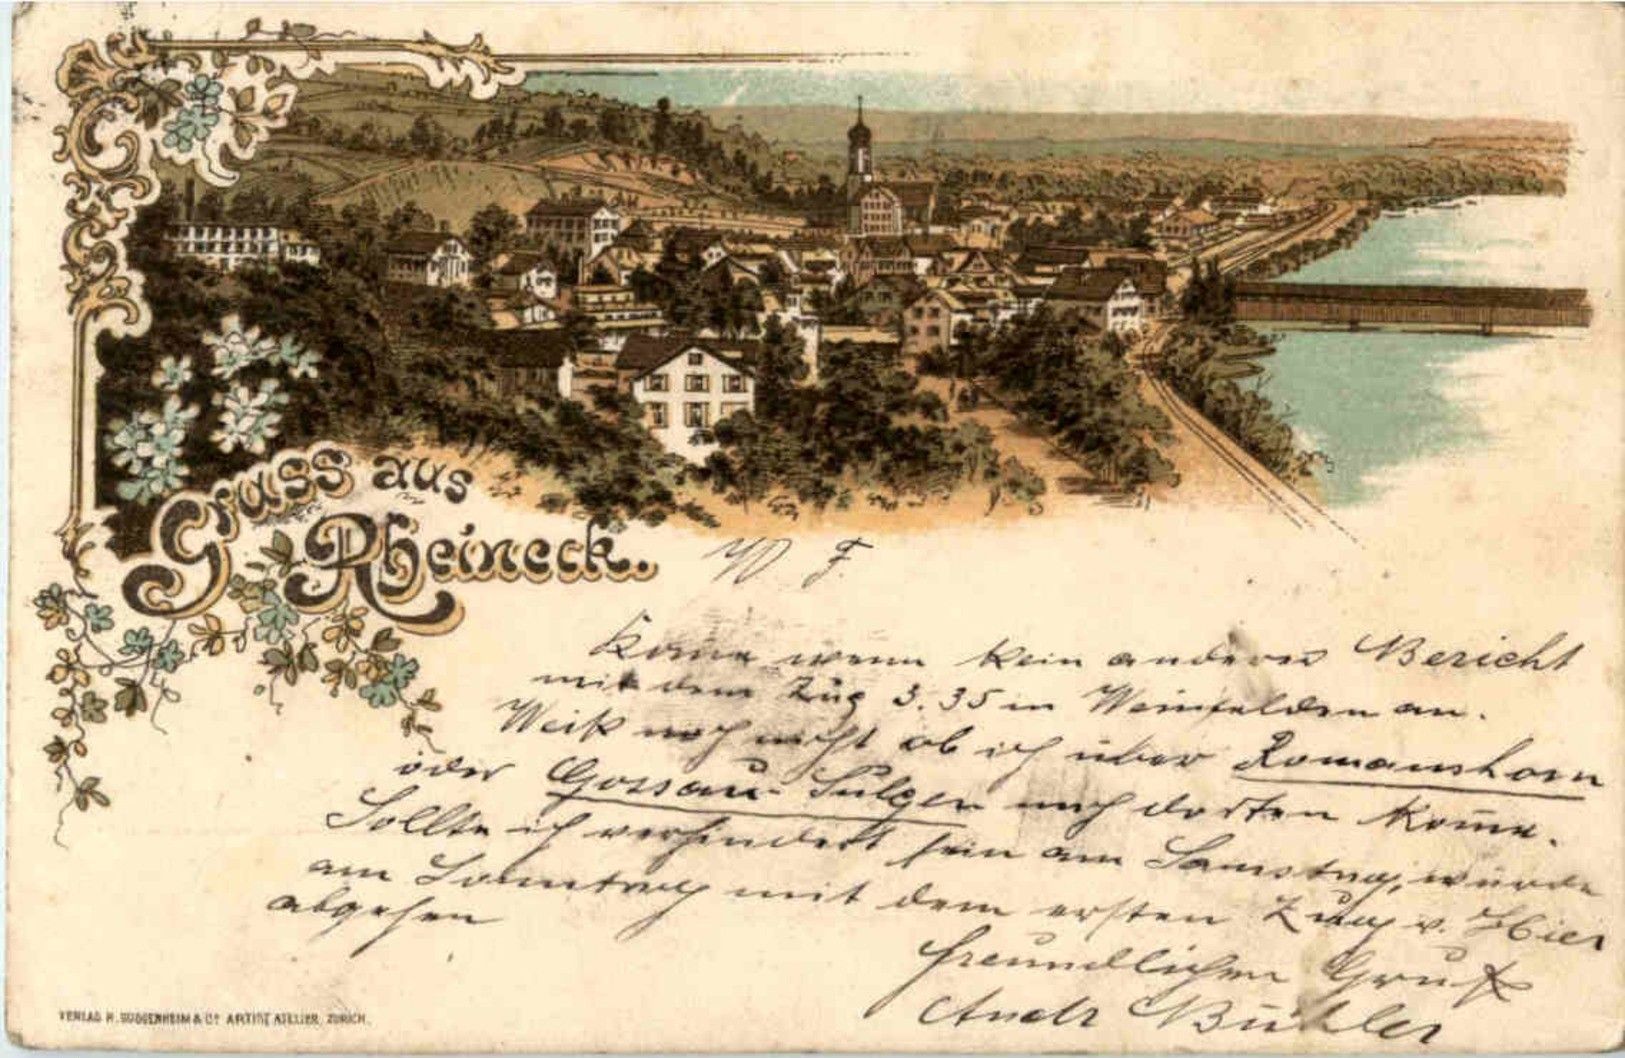 Gruss aus
Rheineck.
W F.
Kome wenn kein anderer Bericht
mit dem Zug 3.35 in Weinfelden an.
Weiß noch nicht ob ich über Romanshorn
oder Gossau-Sulgen nach dorten kome.
Sollte ich verhindert sein am Samstag, würde
am Sonntag mit dem ersten Zug v. Hier
abgehen
freundlichen Gruß
Bühler
VERLAG H. GUGGENHEIM & Cº ARTIST. ATELIER, ZÜRICH.